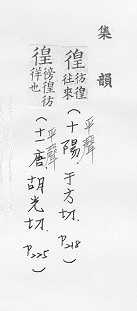 集韻
徨彷徨往來（十陽．于方切．P218）
平聲
徨傍徨彷徉也（十一唐．胡光切．P225）
平聲